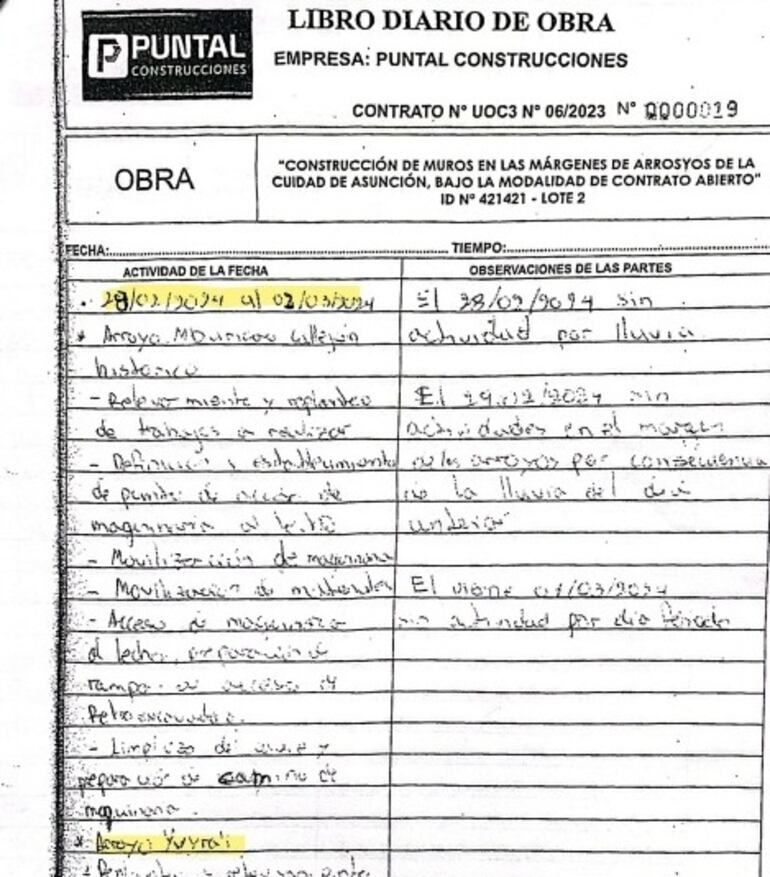 PUNTAL
CONSTRUCCIONES
LIBRO DIARIO DE OBRA
EMPRESA: PUNTAL CONSTRUCCIONES
CONTRATO N° UOC3 N° 06/2023 N° 0000019
OBRA
"CONSTRUCCIÓN DE MUROS EN LAS MÁRGENES DE ARROSYOS DE LA
CUIDAD DE ASUNCIÓN, BAJO LA MODALIDAD DE CONTRATO ABIERTO"
ID N° 421421 - LOTE 2
FECHA: TIEMPO:
ACTIVIDAD DE LA FECHA
28/02/2024 al 02/03/2024
* Arroyo Mburicao Callejón
histórico
- Relevamiento y replanteo
de trabajos a realizar
- Definición y establecimiento
de punto de acceso de
maquinaria al lecho
- Movilización de maquinaria
- Movilización de materiales
- Acceso de maquinaria
al lecho, preparación de
rampa de acceso de
Retroexcavadora.
- Limpieza de y
preparación de camino de
maquinaria
* Arroyo Yvyra'i
OBSERVACIONES DE LAS PARTES
El 28/02/2024 sin
actividad por lluvia
El 29/02/2024 sin
actividades en el margen
de los arroyos por consecuencia
de la lluvia del día
anterior
El viernes 01/03/2024
sin actividad por día feriado